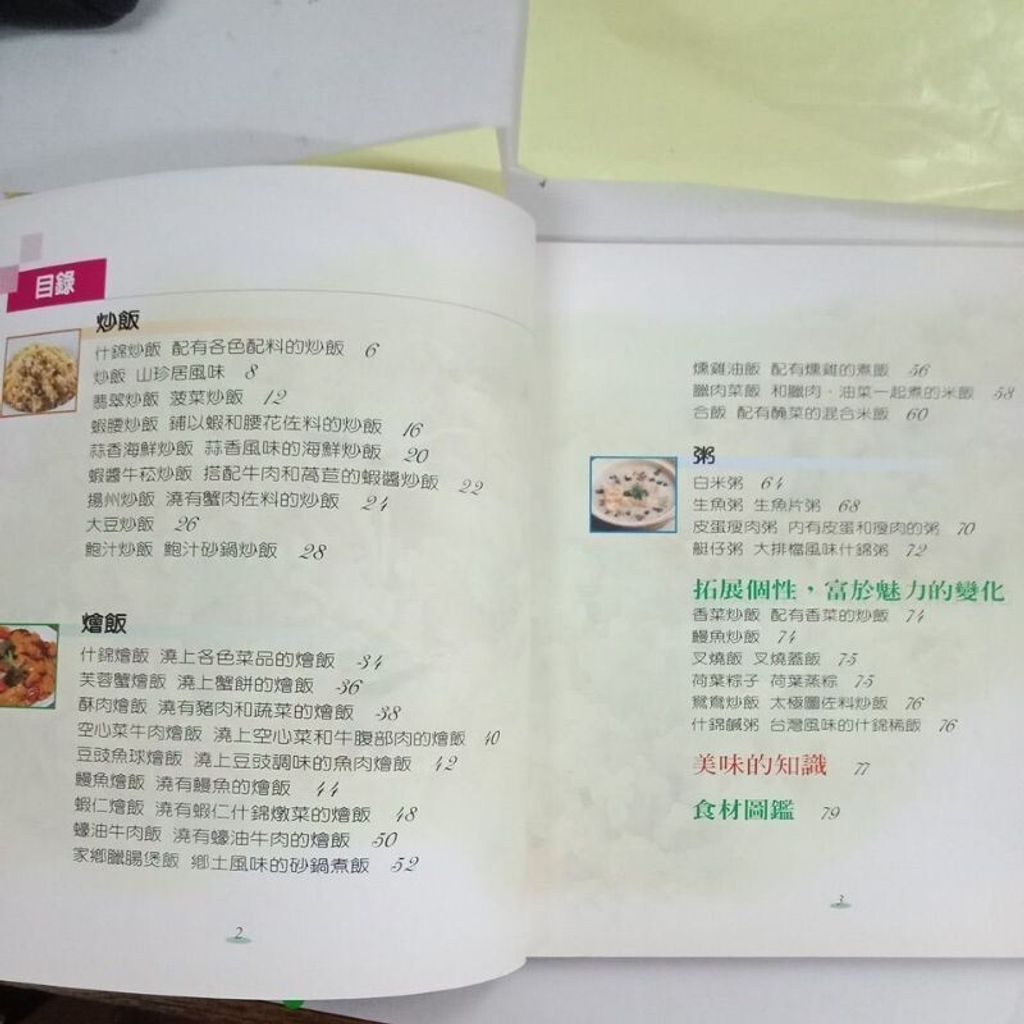 目錄
炒飯
什錦炒飯 配有各色配料的炒飯 6
炒飯 山珍居風味 8
翡翠炒飯 菠菜炒飯 12
蝦腰炒飯 鋪以蝦和腰花佐料的炒飯 16
蒜香海鮮炒飯 蒜香風味的海鮮炒飯 20
蝦醬牛菘炒飯 搭配牛肉和萵苣的蝦醬炒飯 22
揚州炒飯 澆有蟹肉佐料的炒飯 24
大豆炒飯 26
鮑汁炒飯 鮑汁砂鍋炒飯 28
燴飯
什錦燴飯 澆上各色菜品的燴飯 34
芙蓉蟹燴飯 澆上蟹餅的燴飯 36
酥肉燴飯 澆有豬肉和蔬菜的燴飯 38
空心菜牛肉燴飯 澆上空心菜和牛腹部肉的燴飯 40
豆豉魚球燴飯 澆上豆豉調味的魚肉燴飯 42
鰻魚燴飯 澆有鰻魚的燴飯 44
蝦仁燴飯 澆有蝦仁什錦燉菜的燴飯 48
蠔油牛肉飯 澆有蠔油牛肉的燴飯 50
家鄉臘腸煲飯 鄉土風味的砂鍋煮飯 52
2
燻雞油飯 配有燻雞的煮飯 56
臘肉菜飯 和臘肉、油菜一起煮的米飯 58
合飯 配有醃菜的混合米飯 60
粥
白米粥 64
生魚粥 生魚片粥 68
皮蛋瘦肉粥 內有皮蛋和瘦肉的粥 70
艇仔粥 大排檔風味什錦粥 72
拓展個性，富於魅力的變化
香菜炒飯 配有香菜的炒飯 74
鰻魚炒飯 74
叉燒飯 叉燒蓋飯 75
荷葉粽子 荷葉蒸粽 75
鴛鴦炒飯 太極圖佐料炒飯 76
什錦鹹粥 台灣風味的什錦稀飯 76
美味的知識 77
食材圖鑑 79
3